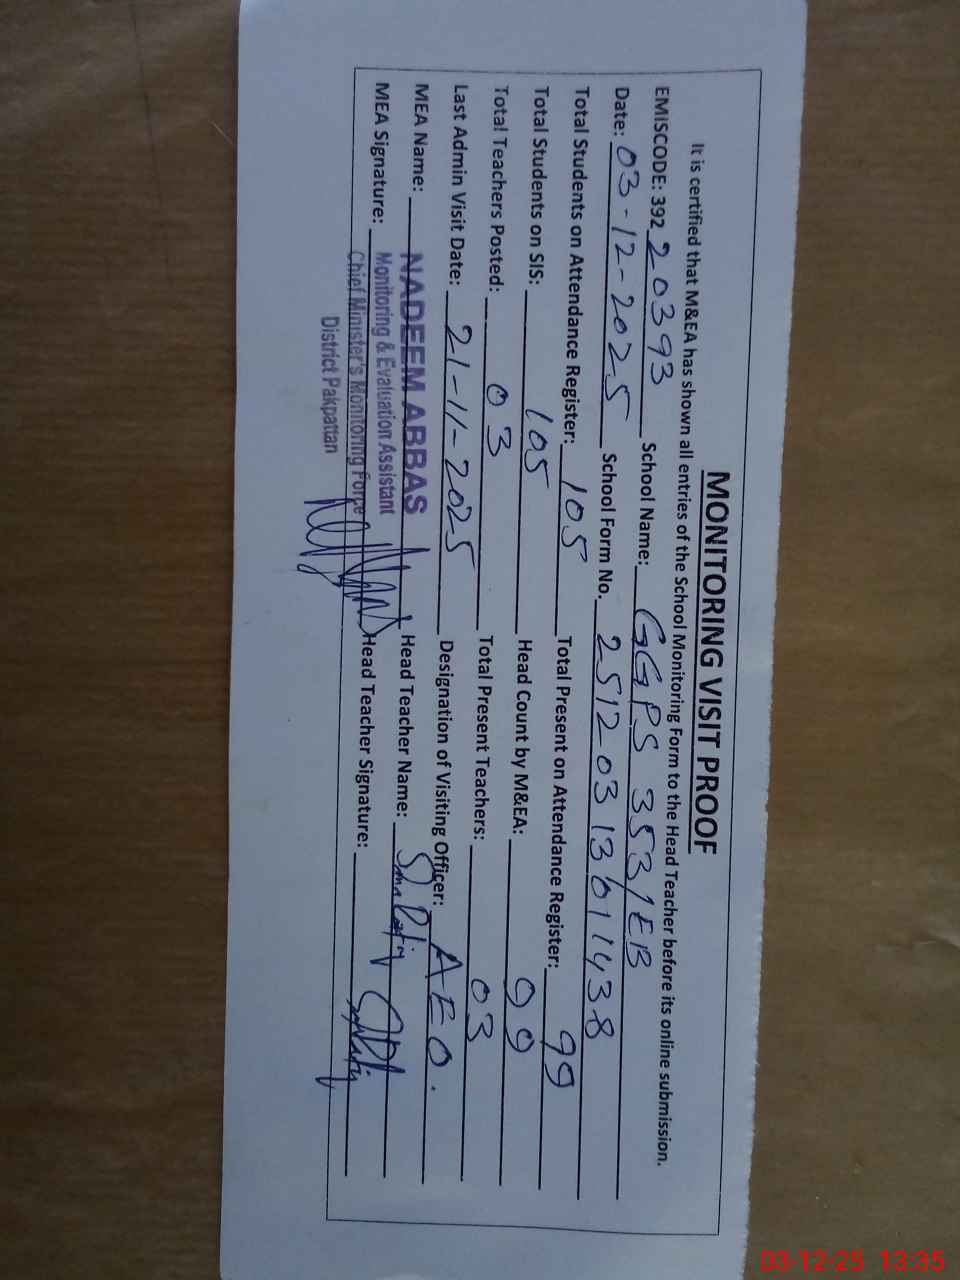 MONITORING VISIT PROOF
It is certified that M&EA has shown all entries of the School Monitoring Form to the Head Teacher before its online submission.
EMISCODE: 392 20393 School Name: GGPS 353/EB
Date: 03-12-2025 School Form No. 2512031301438
Total Students on Attendance Register: 105 Total Present on Attendance Register: 99
Total Students on SIS: 105 Head Count by M&EA: 99
Total Teachers Posted: 03 Total Present Teachers: 03
Last Admin Visit Date: 21-11-2025 Designation of Visiting Officer: AEO.
MEA Name: NADEEM ABBAS Head Teacher Name:
Monitoring & Evaluation Assistant
MEA Signature: Chief Minister's Monitoring Force Head Teacher Signature:
District Pakpattan
03-12-25 13:35